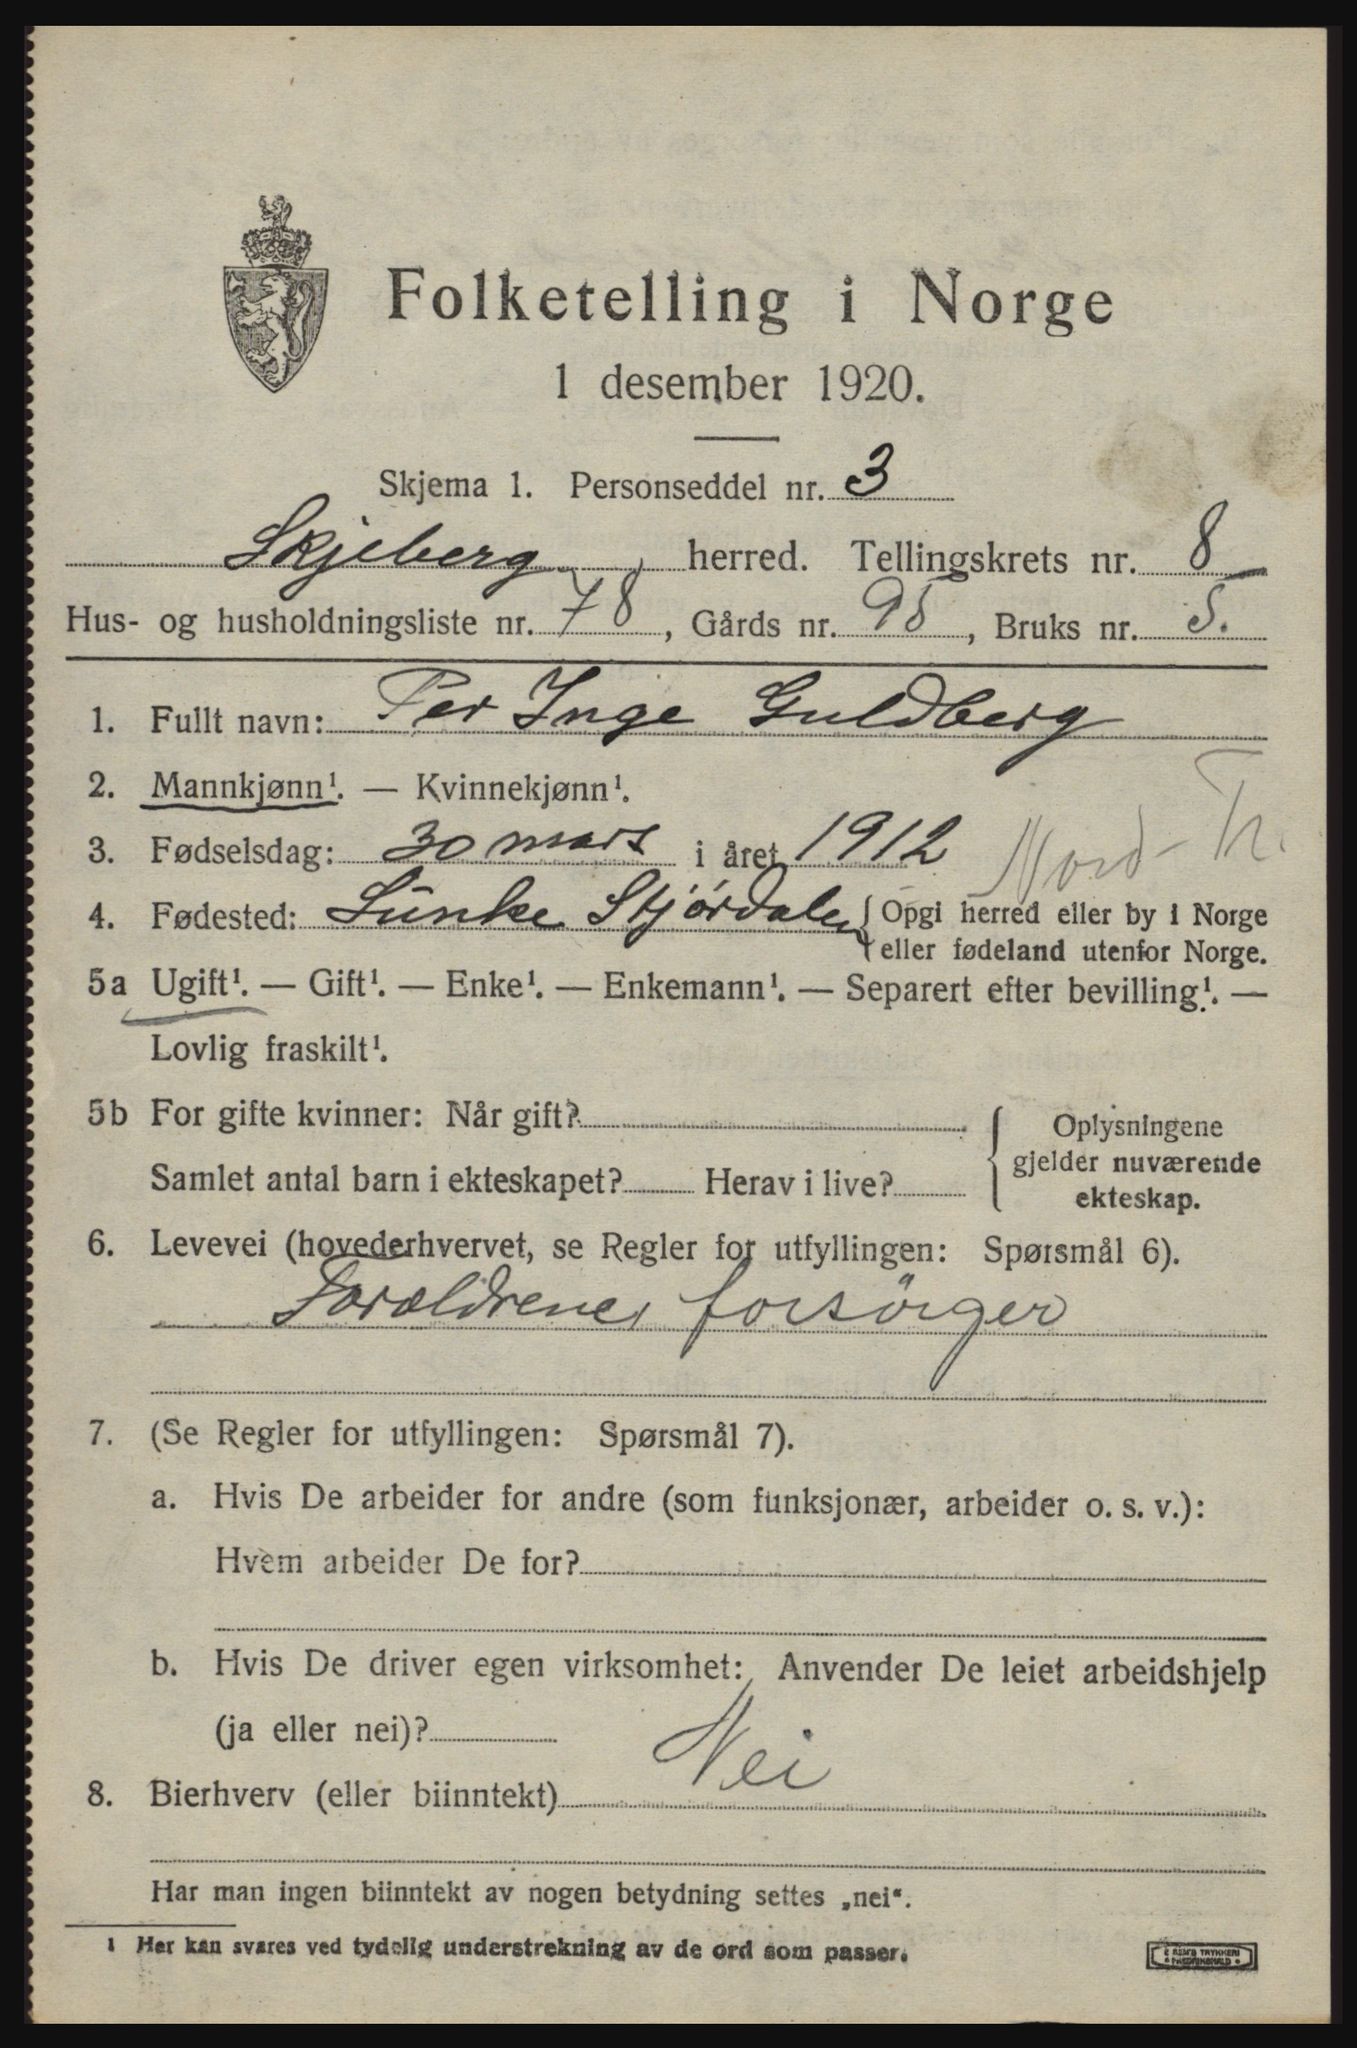 Folketelling i Norge
1 desember 1920.
Skjema 1. Personseddel nr. 3
Skjeberg herred. Tellingskrets nr. 8
Hus- og husholdningsliste nr. 78, Gårds nr. 95, Bruks nr. 5.
1. Fullt navn: Per Inge Guldberg
2. Mannkjønn¹. — Kvinnekjønn¹.
3. Fødselsdag: 30 mars i året 1912 Nord-Tr.
4. Fødested: Lunke Stjørdalen {Opgi herred eller by i Norge
eller fødeland utenfor Norge.
5a Ugift¹. — Gift¹. — Enke¹. — Enkemann¹. — Separert efter bevilling¹. —
Lovlig fraskilt¹.
5b For gifte kvinner: Når gift? Oplysningene
gjelder nuværende
Samlet antal barn i ekteskapet? Herav i live? ekteskap.
6. Levevei (hovederhvervet, se Regler for utfyllingen: Spørsmål 6).
Forældrene forsörger
7. (Se Regler for utfyllingen: Spørsmål 7).
a. Hvis De arbeider for andre (som funksjonær, arbeider o. s. v.):
Hvem arbeider De for?
b. Hvis De driver egen virksomhet: Anvender De leiet arbeidshjelp
(ja eller nei)?
8. Bierhverv (eller biinntekt) Nei
Har man ingen biinntekt av nogen betydning settes „nei“.
1 Her kan svares ved tydelig understrekning av de ord som passer.